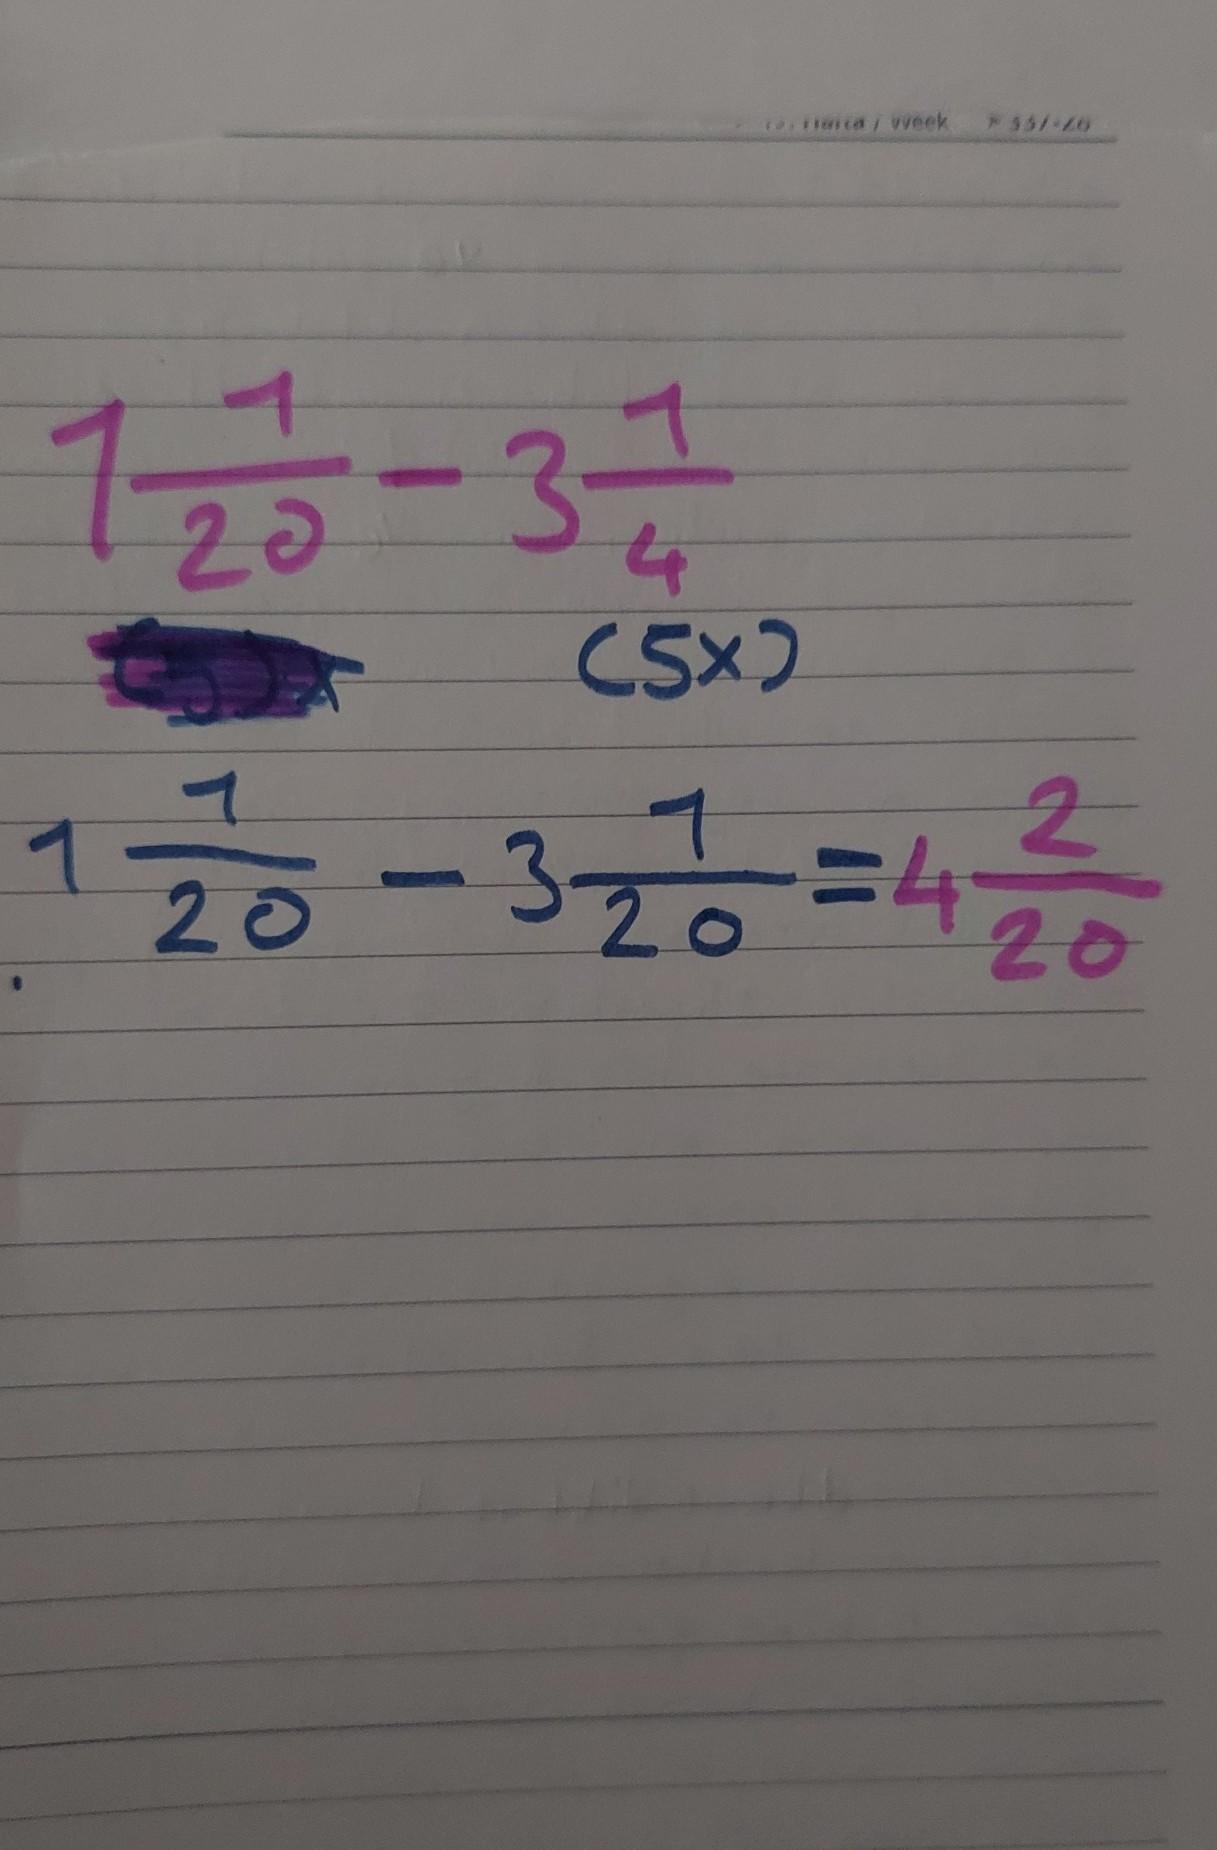 / Week
1 1/20 - 3 1/4
(5x)
1 1/20 - 3 1/20 = 4 2/20